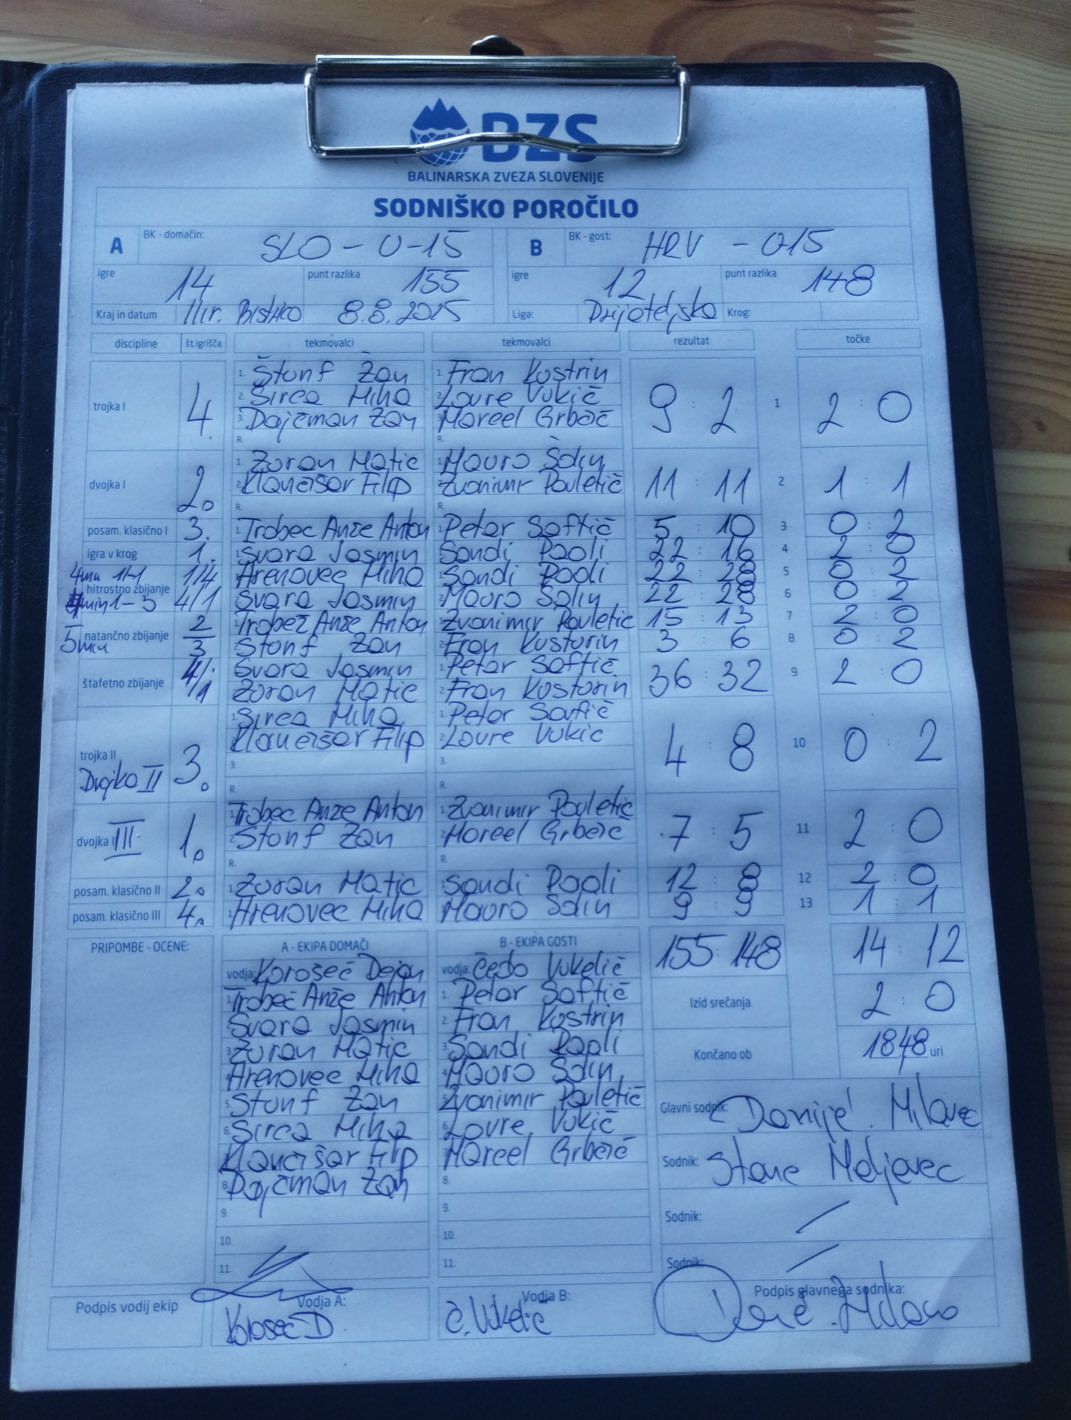 BZS
BALINARSKA ZVEZA SLOVENIJE
SODNIŠKO POROČILO
A BK - domačin: SLO - U-15 B BK - gost: HRV - U15
igre 14 punt razlika 155 igre 12 punt razlika 148
Kraj in datum Ilir. Bistrica 8.8.2025 Liga: Prijateljsko Krog:
discipline št.igrišča tekmovalci tekmovalci rezultat točke
1. Štunf Žan 1. Fran Kustrin
trojka I 4. 2. Sirca Miha 2. Lovre Vukić 9 : 2 1 2 : 0
3. Dajčman Žan 3. Marcel Grberč
R. R.
1. Zoran Matic 1. Mauro Šolin
dvojka I 2. 2. Klančišar Filip 2. Zvonimir Pavletič 11 : 11 2 1 : 1
R.
posam. klasično I 3. 1. Trobec Anže Anton 1. Petar Saftić 5 : 10 3 0 : 2
igra v krog 1. 1. Svara Jasmin 1. Sandi Paoli 22 : 16 4 2 : 0
hitrostno zbijanje 1/4 1. Arenovec Miha 1. Sandi Paoli 22 : 28 5 0 : 2
4/1 2. Svara Jasmin 2. Mauro Šolin 22 : 28 6 0 : 2
natančno zbijanje 2 1. Trobec Anže Anton 1. Zvonimir Pavletič 15 : 13 7 2 : 0
5 min 3 2. Štunf Žan 2. Fran Kusturin 3 : 6 8 0 : 2
štafetno zbijanje 4/1 Svara Jasmin 1. Petar Saftić 36 : 32 9 2 : 0
Zoran Matic 2. Fran Kusturin
1. Sirca Miha 1. Petar Saftić
trojka II 2. Klančišar Filip 2. Lovre Vukić 4 : 8 10 0 : 2
Dvojka II 3. 3. 3.
R. R.
1. Trobec Anže Anton 1. Zvonimir Pavletič
dvojka III 1. 2. Štunf Žan 2. Marcel Grberč 7 : 5 11 2 : 0
R. R.
posam. klasično II 2. 1. Zoran Matic 1. Sandi Paoli 12 : 8 12 2 : 0
posam. klasično III 4. 1. Arenovec Miha 1. Mauro Šolin 9 : 9 13 1 : 1
PRIPOMBE - OCENE: A - EKIPA DOMAČI B - EKIPA GOSTI 155 : 148 14 : 12
vodja: Korošec Dejan vodja: Čedo Vukelić
1. Trobec Anže Anton 1. Petar Saftić Izid srečanja 2 : 0
2. Svara Jasmin 2. Fran Kustrin
3. Zoran Matic 3. Sandi Paoli Končano ob 1848 uri
4. Arenovec Miha 4. Mauro Šolin
5. Štunf Žan 5. Zvonimir Pavletič Glavni sodnik: Danijel Milavec
6. Sirca Miha 6. Lovre Vukić
7. Klančišar Filip 7. Marcel Grberč Sodnik: Stane Maljevec
8. Dajčman Žan 8.
9. 9. Sodnik: /
10. 10.
11. 11. Sodnik: /
Podpis vodij ekip Vodja A: Vodja B: Podpis glavnega sodnika:
Korošec D Č. Vukelić